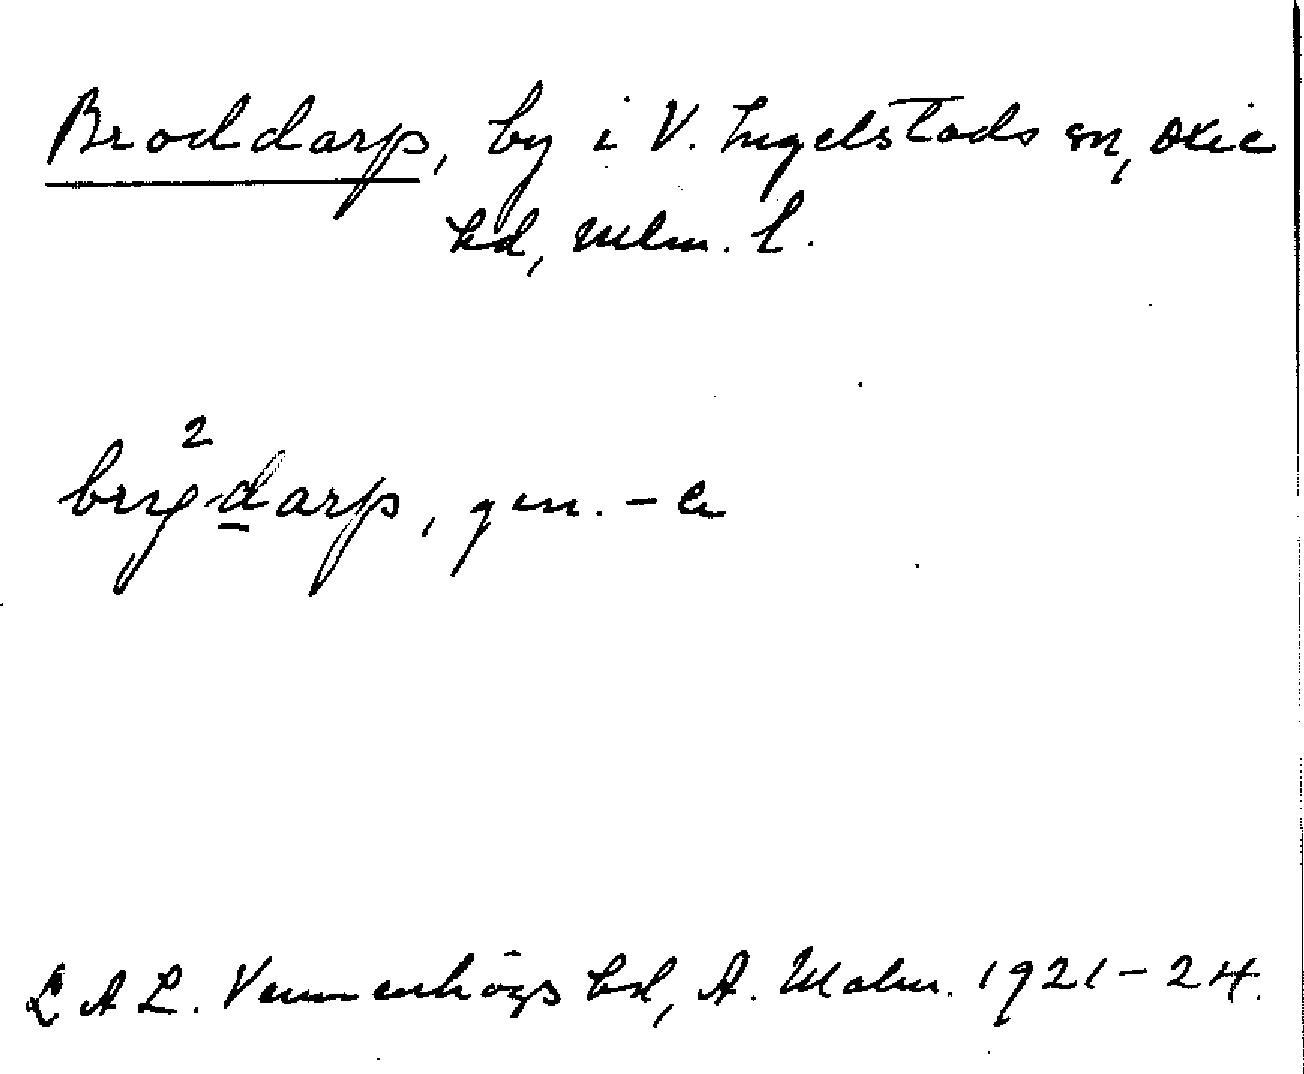 Broddarp, by i V. Ingelstads sn, Oxie
hd, Malm. l.
darp, gen. -a
L A L. Vemmenhögs hd, A. Malm. 1921-24.